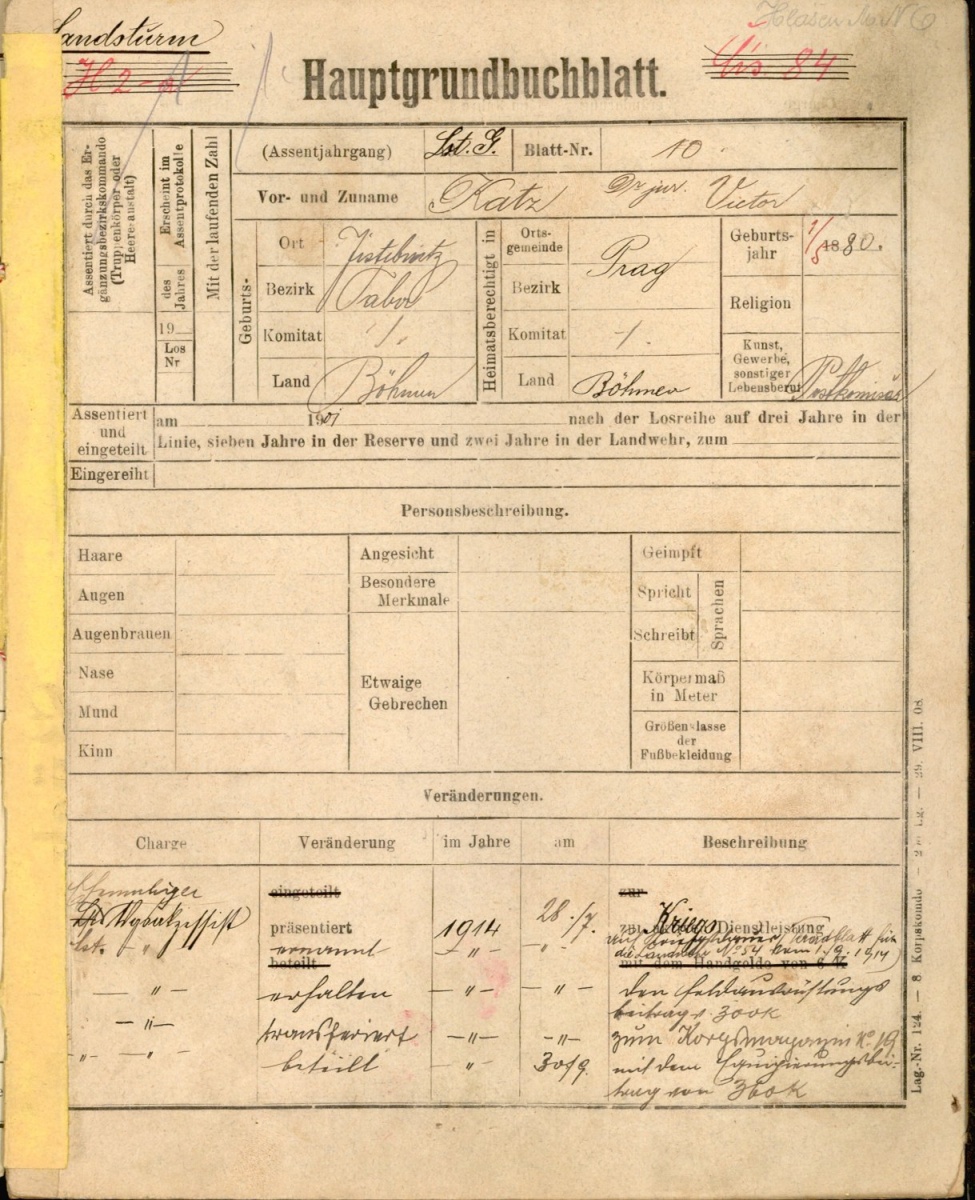 Landsturm
H 2-a
bis 84
Hauptgrundbuchblatt.
Assentiert durch das Er-
gänzungsbezirkskommando
(Truppenkörper oder
Heeresanstalt)
Erscheint im
Assentprotokolle
des Jahres
19
Los
Nr
Mit der laufenden Zahl
(Assentjahrgang) Lst. G. Blatt-Nr. 10
Vor- und Zuname Katz Dr jur. Victor
Geburts-
Ort Jistebnitz
Bezirk Tabor
Komitat /.
Land Böhmen
Heimatsberechtigt in
Orts-
gemeinde Prag
Bezirk
Komitat /.
Land Böhmen
Geburts-
jahr 1/5 1880.
Religion
Kunst,
Gewerbe,
sonstiger
Lebensberuf Postkomisär
Assentiert
und
eingeteilt
am 190 nach der Losreihe auf drei Jahre in der
Linie, sieben Jahre in der Reserve und zwei Jahre in der Landwehr, zum
Eingereiht
Personsbeschreibung.
Haare
Augen
Augenbrauen
Nase
Mund
Kinn
Angesicht
Besondere
Merkmale
Etwaige
Gebrechen
Geimpft
Spricht
Schreibt
Sprachen
Körpermaß
in Meter
Größenklasse
der
Fußbekleidung
Veränderungen.
Charge Veränderung im Jahre am Beschreibung
eingeteilt zur
präsentiert 1914 28./7. zur Kriegs Dienstleistung
ernannt -"- -"-
die Landwehr No 54 vom 1914)
beteilt mit dem Handgelde von 6 K
-"- erhalten -"- -"- den Feldausrüstungs
beitrag v. 300K
-"- transferiert -"- -"- zum Korpsmagazin No 19
-"- beteilt " 30/9. mit dem Equipierungsbei-
trag von 360K
Lag.-Nr. 124. — 8 Korpskomdo — 29. VIII. 08